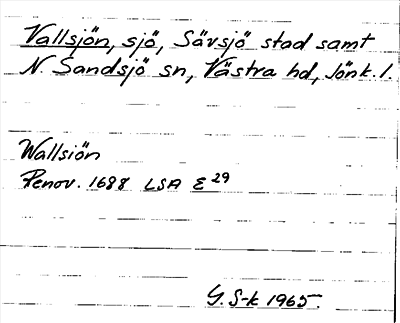 Vallsjön, sjö, Sävsjö stad samt
N. Sandsjö sn, Västra hd, Jönk. l.
Wallsiön
Renov. 1688 LSA E 29
G. S-k 1965.